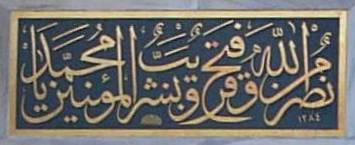 نصر من الله وفتح قريب وبشر المؤمنين يا محمد
١٢٨٤